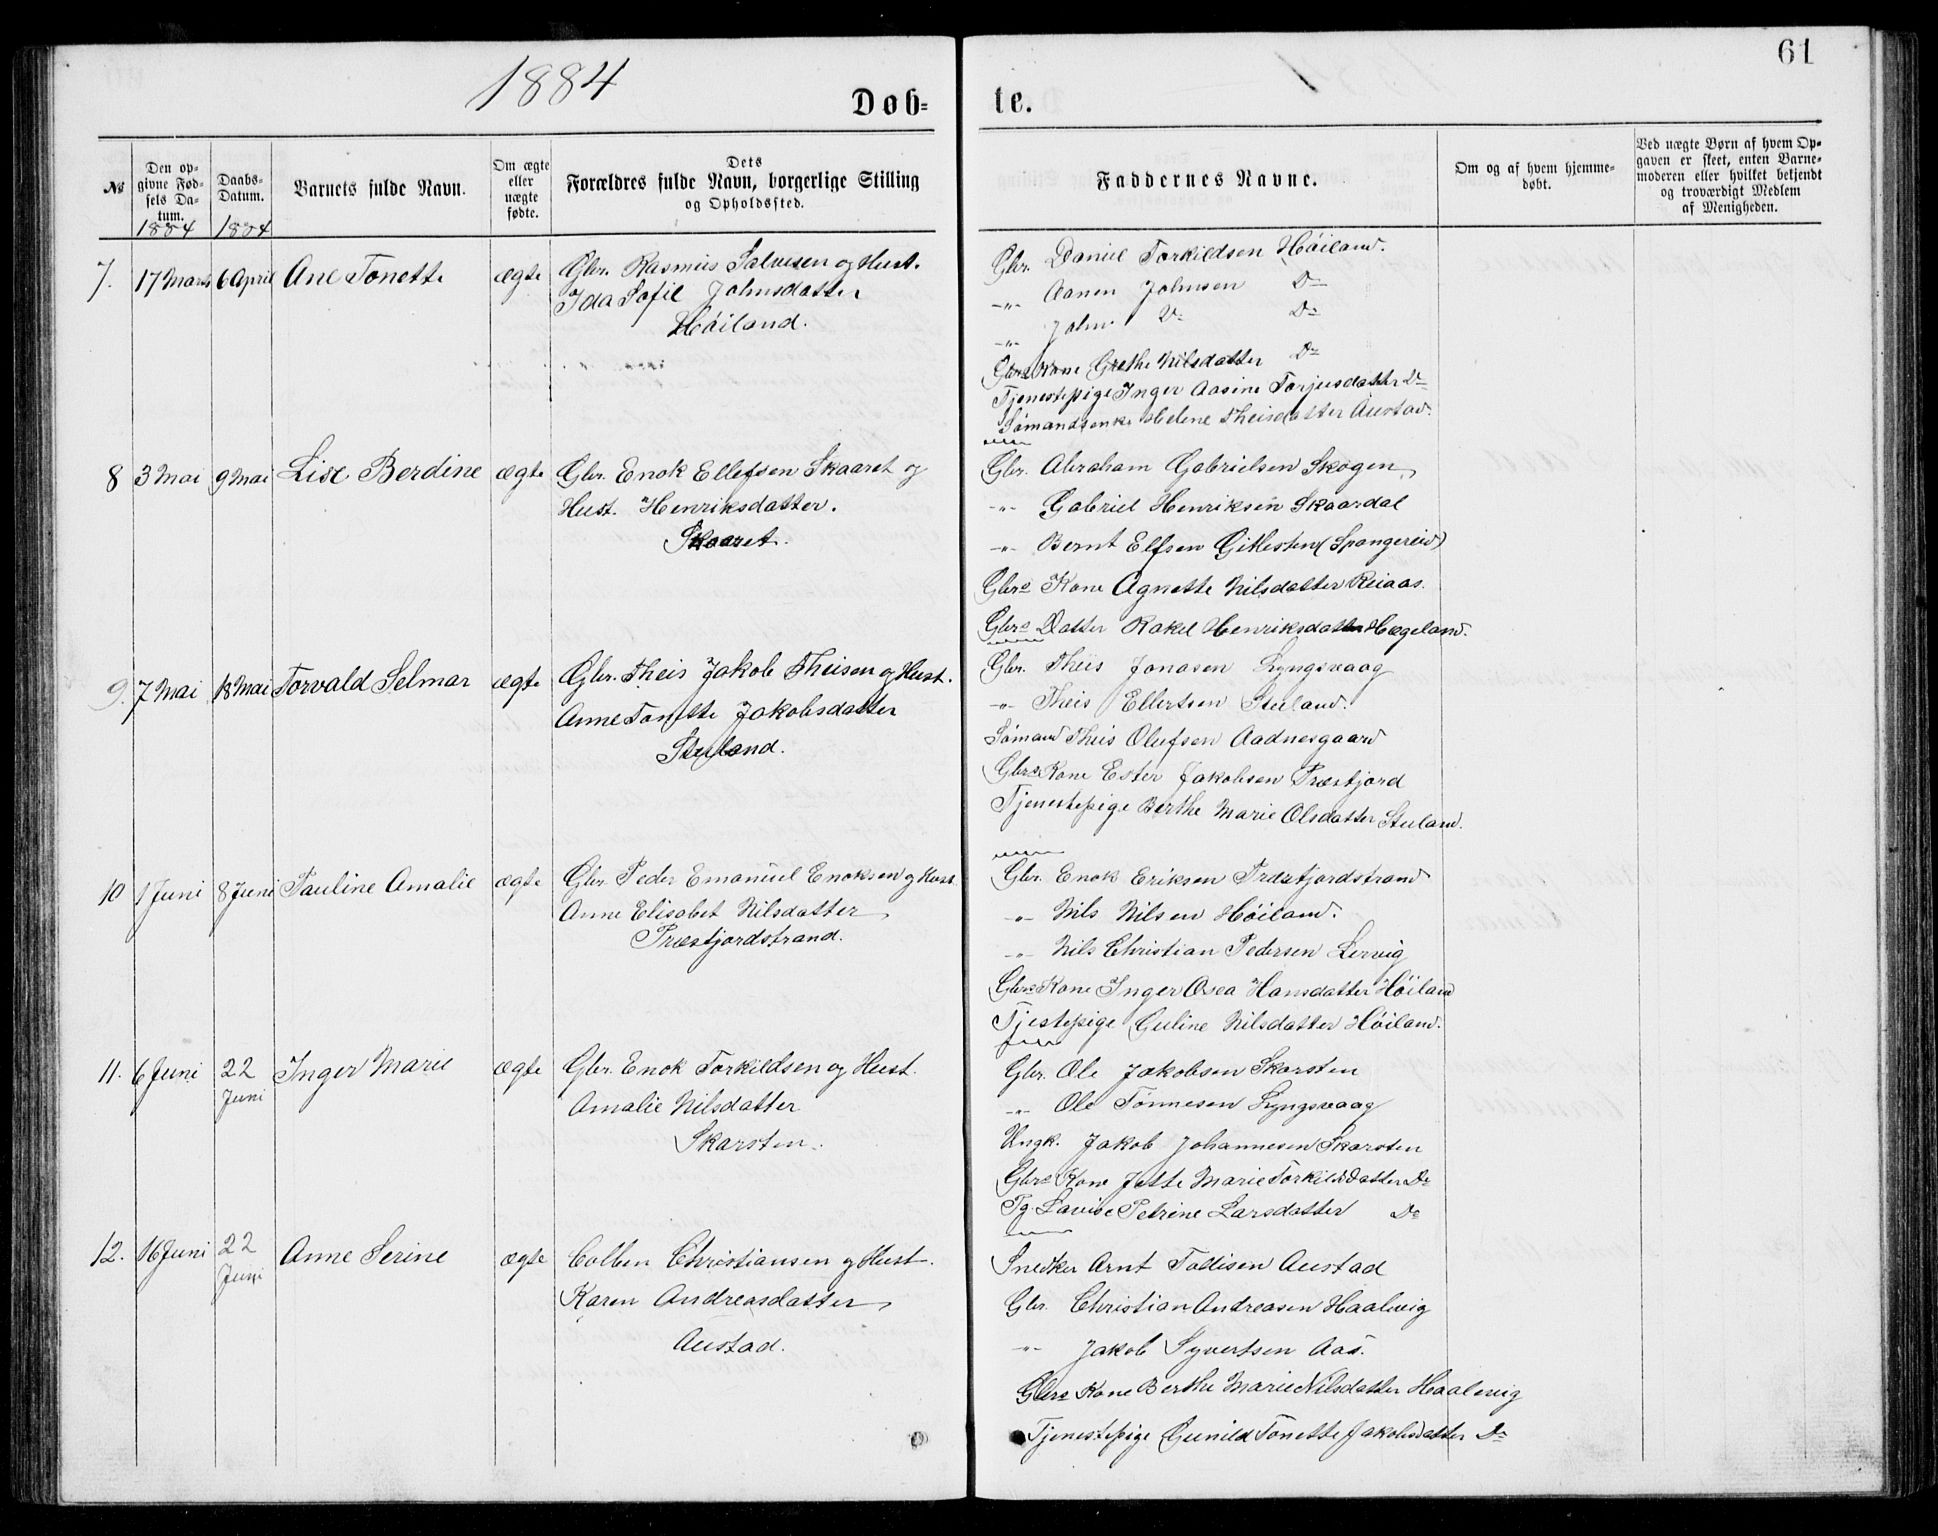 1884
61
Døb-
te.
№
Den op-
givne Fød-
sels Da-
tum.
1884
Daabs-
Datum.
1884
Barnets fulde Navn.
Om ægte
eller
uægte
fødte.
Dets
Forældres fulde Navn, borgerlige Stilling
og Opholdssted.
Faddernes Navne.
Om og af hvem hjemme-
døbt.
Ved uægte Børn af hvem Op-
gaven er skeet, enten Barne-
moderen eller hvilket betjendt
og troværdigt Medlem
af Menigheden.
7. 17 Marts 6 April Ane Tonette ægte Gbr. Rasmus Salvesen og Hust.
Ida Sofie Johnsdatter
Høiland.
Gbr. Daniel Torkildsen Høiland.
-"- Aanen Johnsen Do
-"- John Do Do
Gbrs Kone Grethe Nilsdatter Do
Tjenestepige Inger Aasine Torjusdatter Do
Sømandsenke Helene Theisdatter Austad.
8 3 Mai 9 Mai Lise Berdine ægte Gbr. Enok Ellefsen Skaaret og
Hust. Henriksdatter.
Skaaret.
Gbr. Abraham Gabrielsen Skogen
-"- Gabriel Henriksen Skaardal
-"- Bernt Elfsen Gitlesten (Spangereid)
Gbrs Kone Agnette Nilsdatter Reiaas.
Gbrs Datter Rakel Henriksdatter Hægeland.
9. 7 Mai 18 Mai Torvald Selmar ægte Gbr. Theis Jakob Theisen og Hust.
Anne Tonette Jakobsdatter
Stuland.
Gbr. Theis Jonasen Lyngsvaag
-"- Theis Ellertsen Stuland.
Sømand Theis Olufsen Aadnesgaard
Gbrs Kone Ester Jakobsen Præstfjord
Tjenestepige Berthe Marie Olsdatter Stuland.
10 1 Juni 8 Juni Pauline Amalie ægte Gbr. Peder Emanuel Enoksen og Hust.
Anne Elisabet Nilsdatter
Præstfjordstrand.
Gbr. Enok Eriksen Præstfjordstrand
-"- Nils Nilsen Høiland.
-"- Nils Christian Pedersen Lervig
Gbrs Kone Inger Osea Hansdatter Høiland
Tjestepige Guline Nilsdatter Høiland.
11. 6 Juni 22 Juni Inger Marie ægte Gbr. Enok Torkildsen og Hust.
Amalie Nilsdatter
Skarsten.
Gbr. Ole Jakobsen Skarsten
-"- Ole Tønnesen Lyngsvaag
Ungk. Jakob Johannesen Skarsten
Gbrs Kone Jette Marie Torkildsdatter Do
Pg. Lavise Petrine Larsdatter Do
12. 16 Juni 22 Juni Anne Serine ægte Colben Christiansen og Hust.
Karen Andreasdatter
Austad.
Snedker Arnt Tollisen Austad
Gbr. Christian Andreasen Haalevig
-"- Jakob Syvertsen Aas.
Gbrs Kone Berthe Marie Nilsdatter Haalevig
Tjenestepige Gunild Tonette Jakobsdatter Do